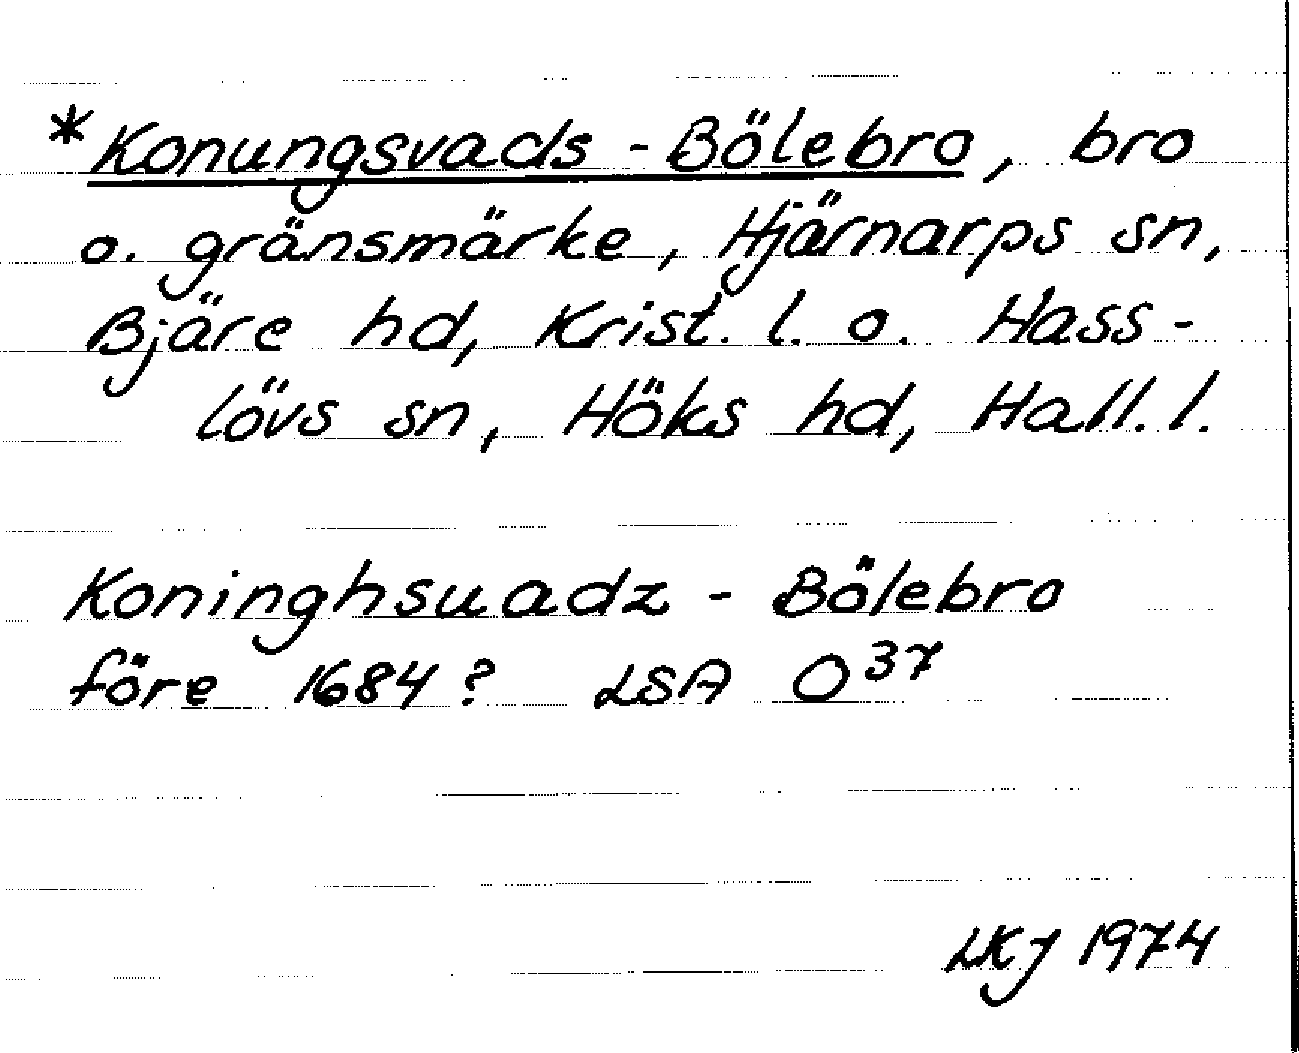 *Konungsvads - Bölebro, bro
o. gränsmärke, Hjärnarps sn,
Bjäre hd, Krist. l. o. Hass-
lövs sn, Höks hd, Hall. l.
Koninghsuadz - Bölebro
före 1684? LSA O37
LKJ 1974